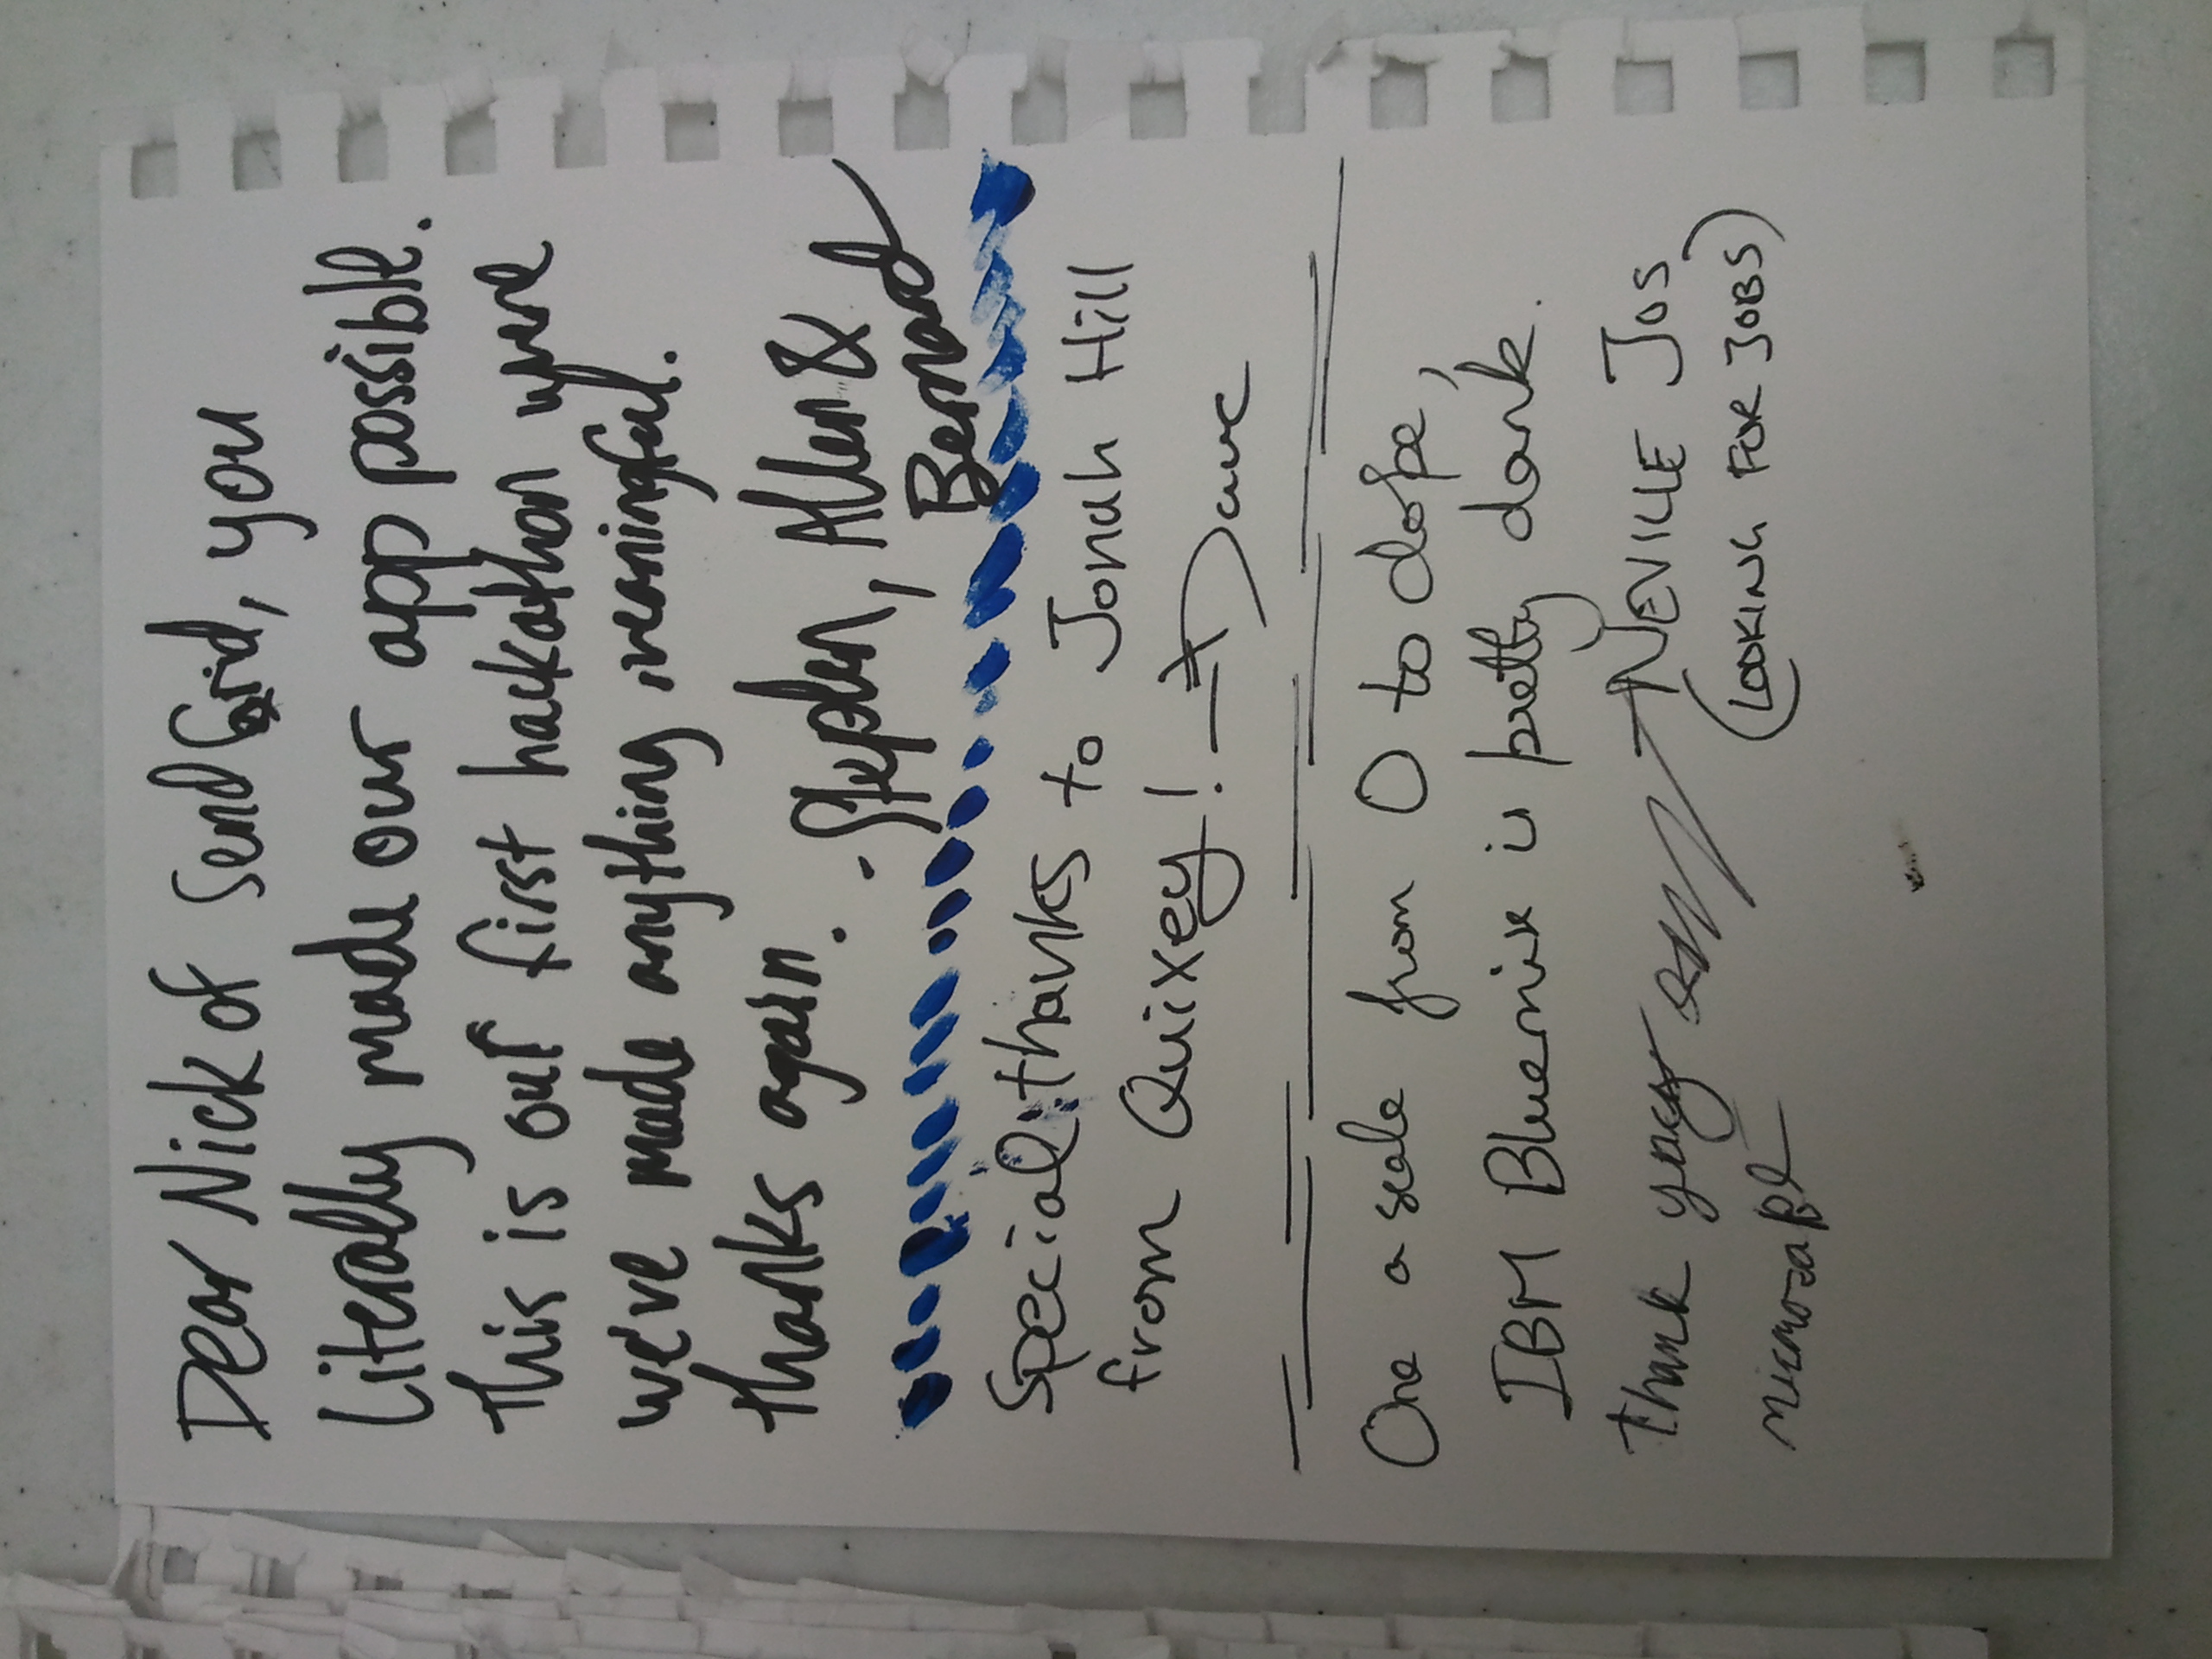 Dear Nick of SendGrid, you
Literally made our app possible.
This is our first hackathon where
we've made anything meaningful.
Thanks again. -Stephen, Allen &
Bernard
Special thanks to Jonah Hill
from Quixey! - Dave
One a scale from 0 to dope,
IBM Bluemix is pretty dank.
NEVILLE JOS
(LOOKING FOR JOBS)
Thank